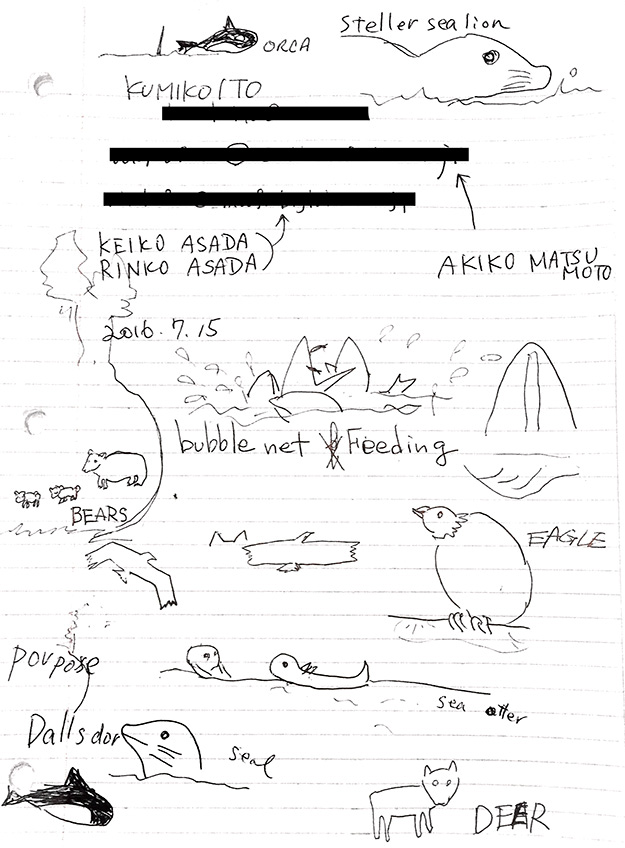 Steller sea lion
ORCA
KUMIKO ITO
KEIKO ASADA
RINKO ASADA
AKIKO MATSU
MOTO
2016.7.15
bubble net Feeding
BEARS
EAGLE
porpose
sea otter
Dalls dor
seal
DEER